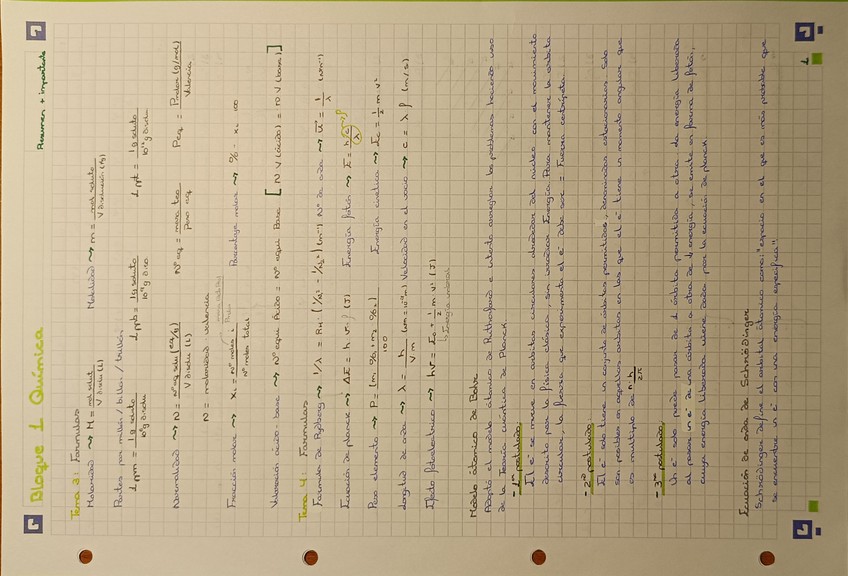 Resumen + importante
Bloque 1 Química
Tema 2: Formulas
Molaridad ⤳ M = mol solut / V disolu (L)   Molalidad ⤳ m = mol soluto / V disolución (kg)
Partes por millón / billón / trillón
1 ppm = 1g soluto / 10⁶g disolu   1 ppb = 1g soluto / 10⁹g diso   1 ppt = 1g soluto / 10¹²g disolu
Normalidad ⤳ N = Nº eq solu (eq/g) / V disolu (L)   Nº eq = masa teo / peso eq   Peq = Pmolar (g/mol) / Valencia
N = molaridad · valencia
Fracción molar ⤳ xi = Nº moles i / Nº moles total   Porcentaje molar ⤳ % = xi · 100
Valoración ácido-base ⤳ Nº equi Ácido = Nº equi Base [N V (ácido) = N V (base)]
Tema 4: Formulas
Formula de Rydberg ⤳ 1/λ = RH · (1/n₁² - 1/n₂²) (m⁻¹) Nº de onda ⤳ ῡ = 1/λ (m⁻¹)
Ecuación de planck ⤳ ΔE = h · ν (J)   Energía fotón ⤳ E = h · c/λ
Peso elemento ⤳ P = (m₁ %₁ + m₂ %₂) / 100   Energía cinética ⤳ Ec = 1/2 m v²
Longitud de onda ⤳ λ = h / V m   Velocidad en el vacío ⤳ c = λ f (m/s)
Efecto fotoeléctrico ⤳ hν = E₀ + 1/2 m v² (J)
↳ Energía umbral
Modelo atómico de Bohr
Adaptó el modelo atómico de Rutherford e intentó arreglar los problemas haciendo uso
de la Teoría cuántica de Planck.
- 1er postulado:
El e⁻ se mueve en órbitas circulares alrededor del núcleo con el movimiento
descrito por la física clásica, sin irradiar Energía. Para mantener la órbita
circular, la fuerza que experimenta el e⁻ debe ser = Fuerza centrípeta.
- 2do postulado:
El e⁻ solo tiene un conjunto de órbitas permitidas, denominadas estacionarias. Solo
son posibles en aquellas órbitas en las que el e⁻ tiene un momento angular que
es múltiplo de n · h / 2π
- 3er postulado:
Un e⁻ solo puede pasar de 1 órbita permitida a otra. La energía liberada
al pasar un e⁻ de una órbita a otra de ↓ energía, se emite en forma de fotón,
cuya energía liberada viene dada por la ecuación de planck.
Ecuación de onda de Schrödinger
Schrödinger define el orbital atómico como: "espacio en el que es más probable que
se encuentre un e⁻ con una energía específica"
1